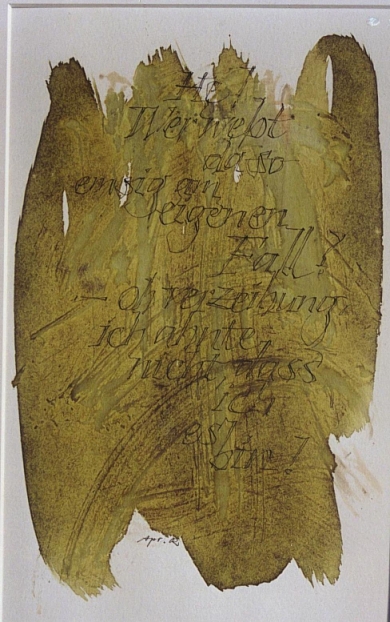 He!
Wer webt
da so
emsig am
eigenen
Fall?
– oh verzeihung,
ich ahnte,
nicht, dass
ich
es
bin!